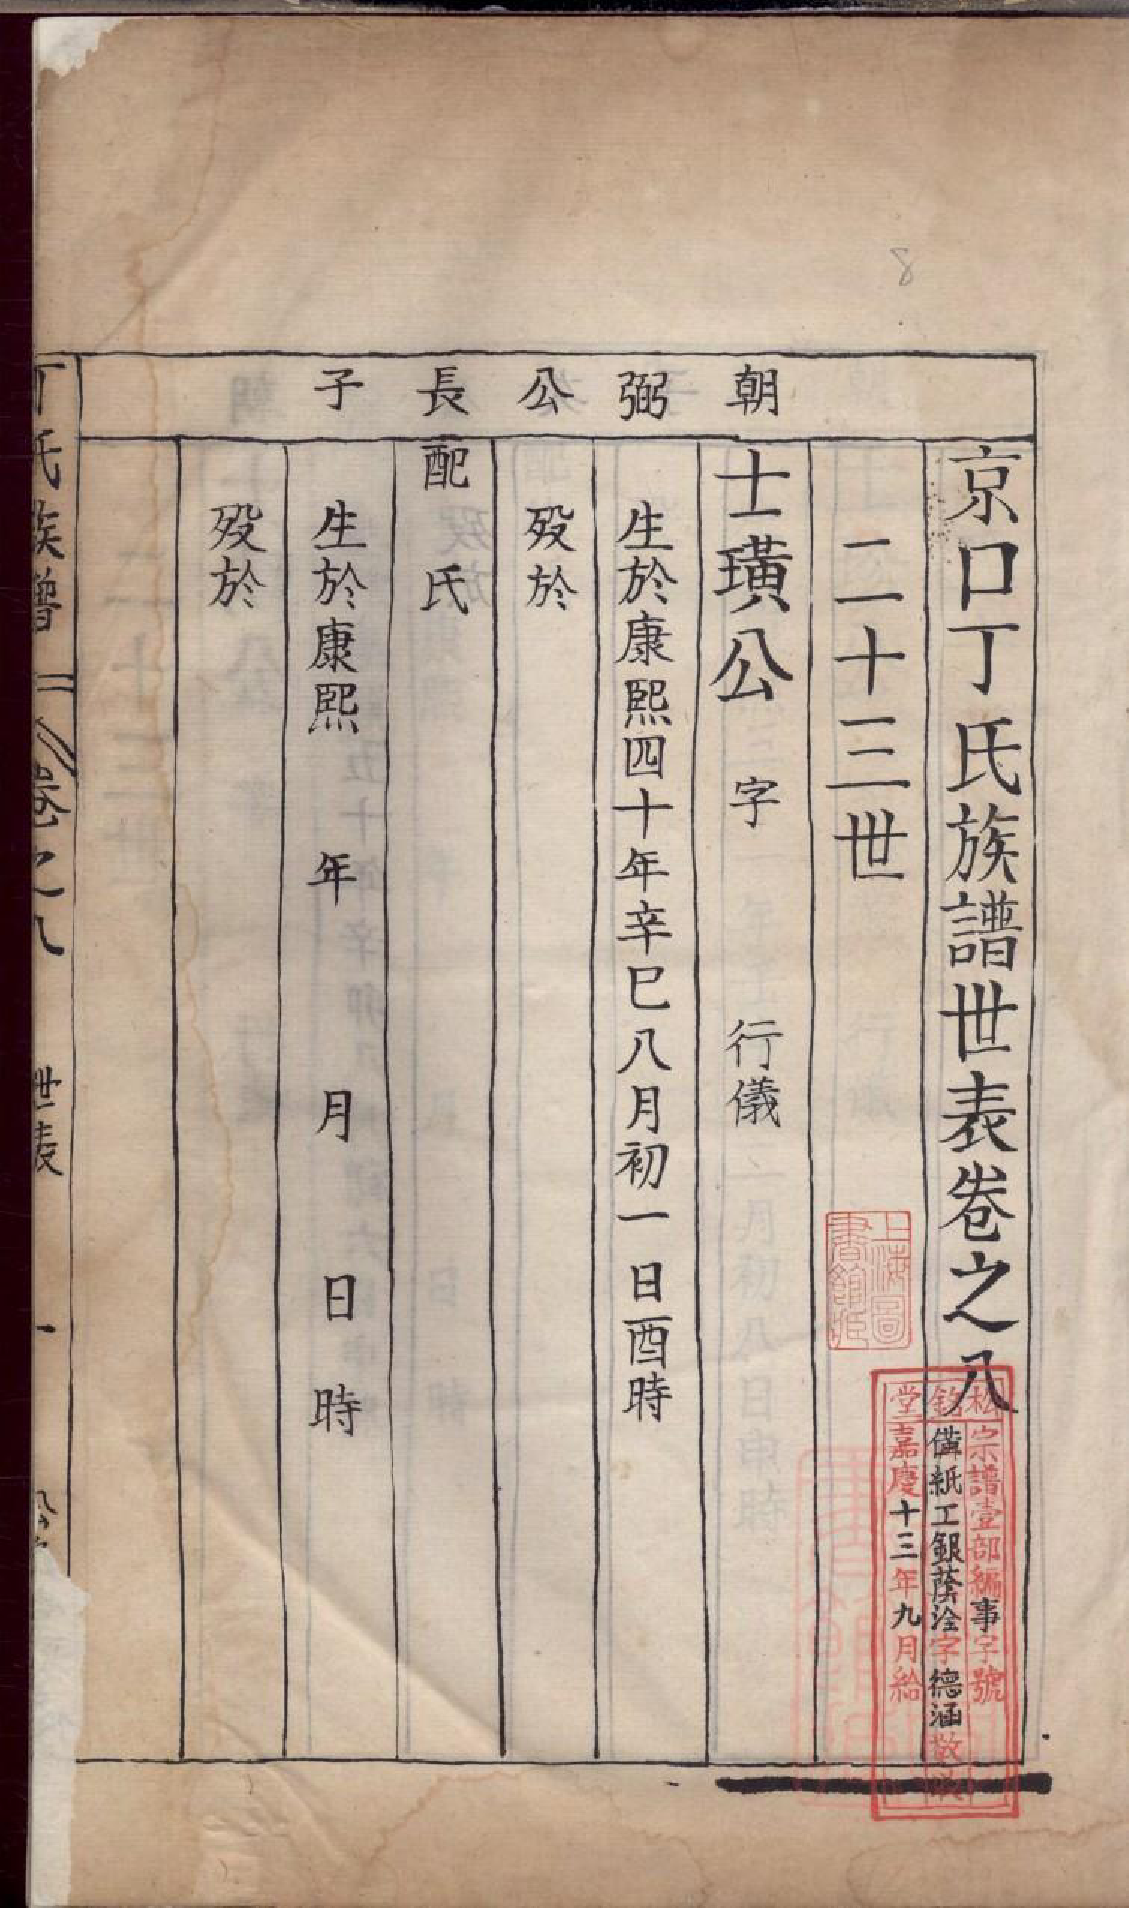 京口丁氏族譜世表卷之八
二十三世
朝弼公長子
士璜公 字 行儀
生於康熙四十年辛巳八月初一日酉時
歿於
配 氏
生於康熙 年 月 日 時
歿於
丁氏族譜 卷之八 世表 一
上海圖
書館藏
松銘堂
宗譜壹部編事字號
備紙工銀蔭淦字德涵敬收
嘉慶十三年九月給
8